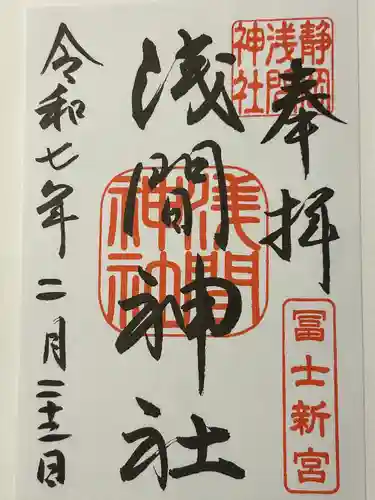 奉拝
静岡浅間神社
冨士新宮
浅間神社
浅間神社
令和七年二月二十二日